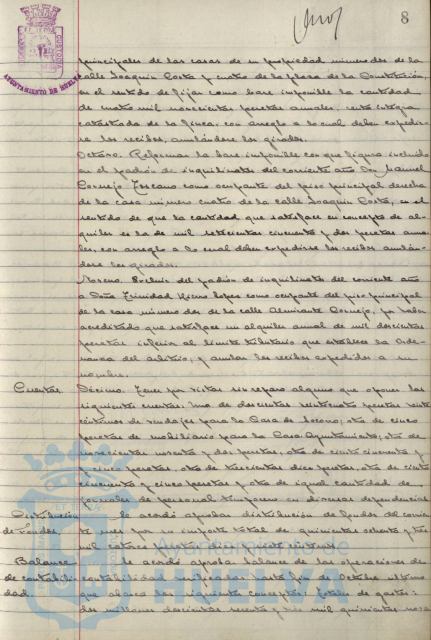 8
AYUNTAMIENTO DE HUELVA
principales de las casas de su propiedad números dos de la
calle Joaquín Costa y cuatro de la plaza de la Constitución,
en el sentido de fijar como base imponible la cantidad
de cuatro mil novecientas pesetas anuales, renta íntegra
catastrada de la finca, con arreglo a lo cual deben expedir-
se los recibos, anulándose los girados.
Octavo. Reformar la base imponible con que figura incluído
en el padrón de inquilinatos del corriente año Don Manuel
Cornejo Toscano como ocupante del piso principal derecha
de la casa número cuatro de la calle Joaquín Costa, en el
sentido de que la cantidad que satisface en concepto de al-
quiler es la de mil setecientas cincuenta y dos pesetas anua-
les, con arreglo a lo cual deben expedirse los recibos anulán-
dose los girados.
Noveno. Excluir del padrón de inquilinatos del corriente año
a Doña Trinidad López como ocupante del piso principal
de la casa número dos de la calle Almirante Cornejo, por haber
acreditado que satisface un alquiler anual de mil doscientas
pesetas inferior al límite tributario que establece la Orde-
nanza del arbitrio, y anular los recibos expedidos a su
nombre.
Cuentas. Décimo. Tener por vistas sin reparo alguno que oponer las
siguientes cuentas: Una de doscientas pesetas
céntimos de vendajes para la Casa de Socorro; otra de cinco
pesetas de mobiliario para la Casa Ayuntamiento; otra de
novecientas noventa y dos pesetas, otra de ciento cincuenta
y cinco pesetas, otra de trescientas doce pesetas, otra de ciento
cincuenta y cinco pesetas y otra de igual cantidad de
jornales de personal temporero en diversas dependencias
Distribución Se acordó aprobar distribución de fondos del corrien-
de fondos. te mes por importe total de quinientas ochenta y tres
mil catorce pesetas
Balance Se acordó aprobar balance de las operaciones de
de contabili- contabilidad verificadas hasta fin de Octubre último
dad. que abarca los siguientes conceptos: totales de gastos:
dos millones doscientas sesenta y mil quinientas nove
Ayuntamiento de
HUELVA